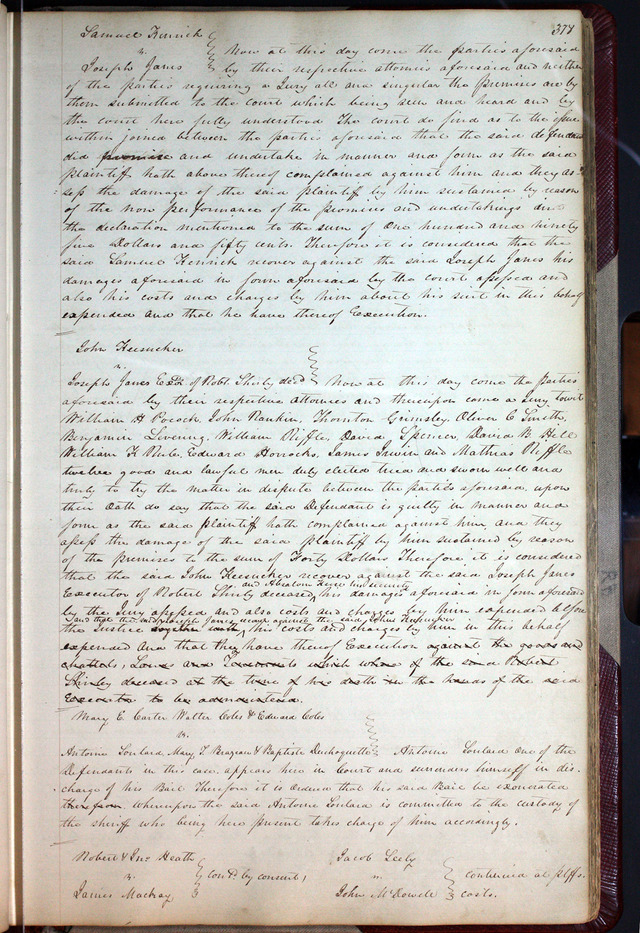 377
Samuel Kenrick
vs.
Now at this day come the parties aforesaid
Joseph Janes by their respective attornies aforesaid and neither
of the parties requiring a Jury all and singular the premises are by
them submitted to the court which being seen and heard and by
the court here fully understood The court do find as to the issue
within joined between the parties aforesaid that the said defendant
did promise and undertake in manner and form as the said
plaintiff hath above thereof complained against him and they as-
sess the damage of the said plaintiff by him sustained by reason
of the non performance of the promises and undertakings in
the declaration mentioned to the sum of One hundred and ninety
five Dollars and fifty cents. Therefore it is considered that the
said Samuel Kenrick recover against the said Joseph Janes his
damages aforesaid in form aforesaid by the court assessed and
also his costs and charges by him about his suit in this behalf
expended and that he have thereof Execution.
John
vs.
Joseph Janes Exor. of Robt. Shirly decd Now at this day come the Parties
aforesaid by their respective Attornies and thereupon came a Jury towit
William H Pocock, John Rankin, Thornton Grimsley, Oliver C Smith,
Benjamin William Riffle, David Spencer, David B. Hill
William K Rule, Edward Horrocks, James Irwin and Mathias Riffle
twelve good and lawful men duly elected tried and sworn well and
truly to try the matter in dispute between the parties aforesaid. upon
their Oath do say that the said Defendant is guilty in manner and
form as the said plaintiff hath complained against him, and they
assess the damage of the said plaintiff by him sustained by reason
of the premises to the sum of Forty Dollars Therefore it is considered
that the said John recover against the said Joseph Janes
and Abraham his security
Executor of Robert Shirly deceased, his damages aforesaid in form aforesaid
by the Jury assessed and also costs and charges by him expended before
and that the said Joseph Janes recover against the said John
the Justice together with his costs and charges by him in this behalf
expended And that they have thereof Execution against the goods and
chattels, Lands and Tenements which where of the said Robert
Shirley deceased at the time of his death in the hands of the said
Executor to be administered.
Mary E. Carter Walter Coles & Edward Coles
vs.
Antoine Soulard, Mary T. Brazeau & Baptiste Duchoquette Antoine Soulard One of the
Defendants in this case appears here in Court and surrenders himself in dis-
charge of his Bail Therefore it is Ordered that his said Bail be exonerated
therefrom. whereupon the said Antoine Soulard is committed to the custody of
the sheriff who being here present takes charge of him accordingly.
Robert & Jno. Heath
vs.
James Mackay
Contd. by consent,
Jacob Seely
"
John McDowell
continued at plffs.
costs.